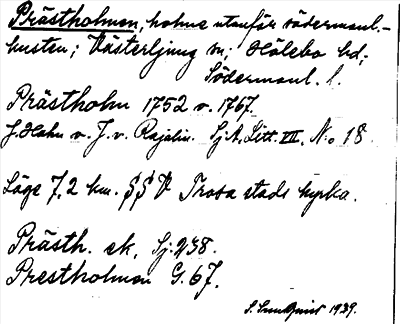 Prästholmen, holme utanför södermanl.-
kusten; Västerljung sn; Hölebo hd;
Södermanl. l.
Prästholm 1752 v. 1767.
J. Hahn v. J. v. Rajalin. Sj.A. Litt. VII, No 18.
Läge 7,2 km. SSV Trosa stads kyrka.
Prästh. ek. Sj. 238.
Prestholmen G. 67.
S. Sundquist 1939.